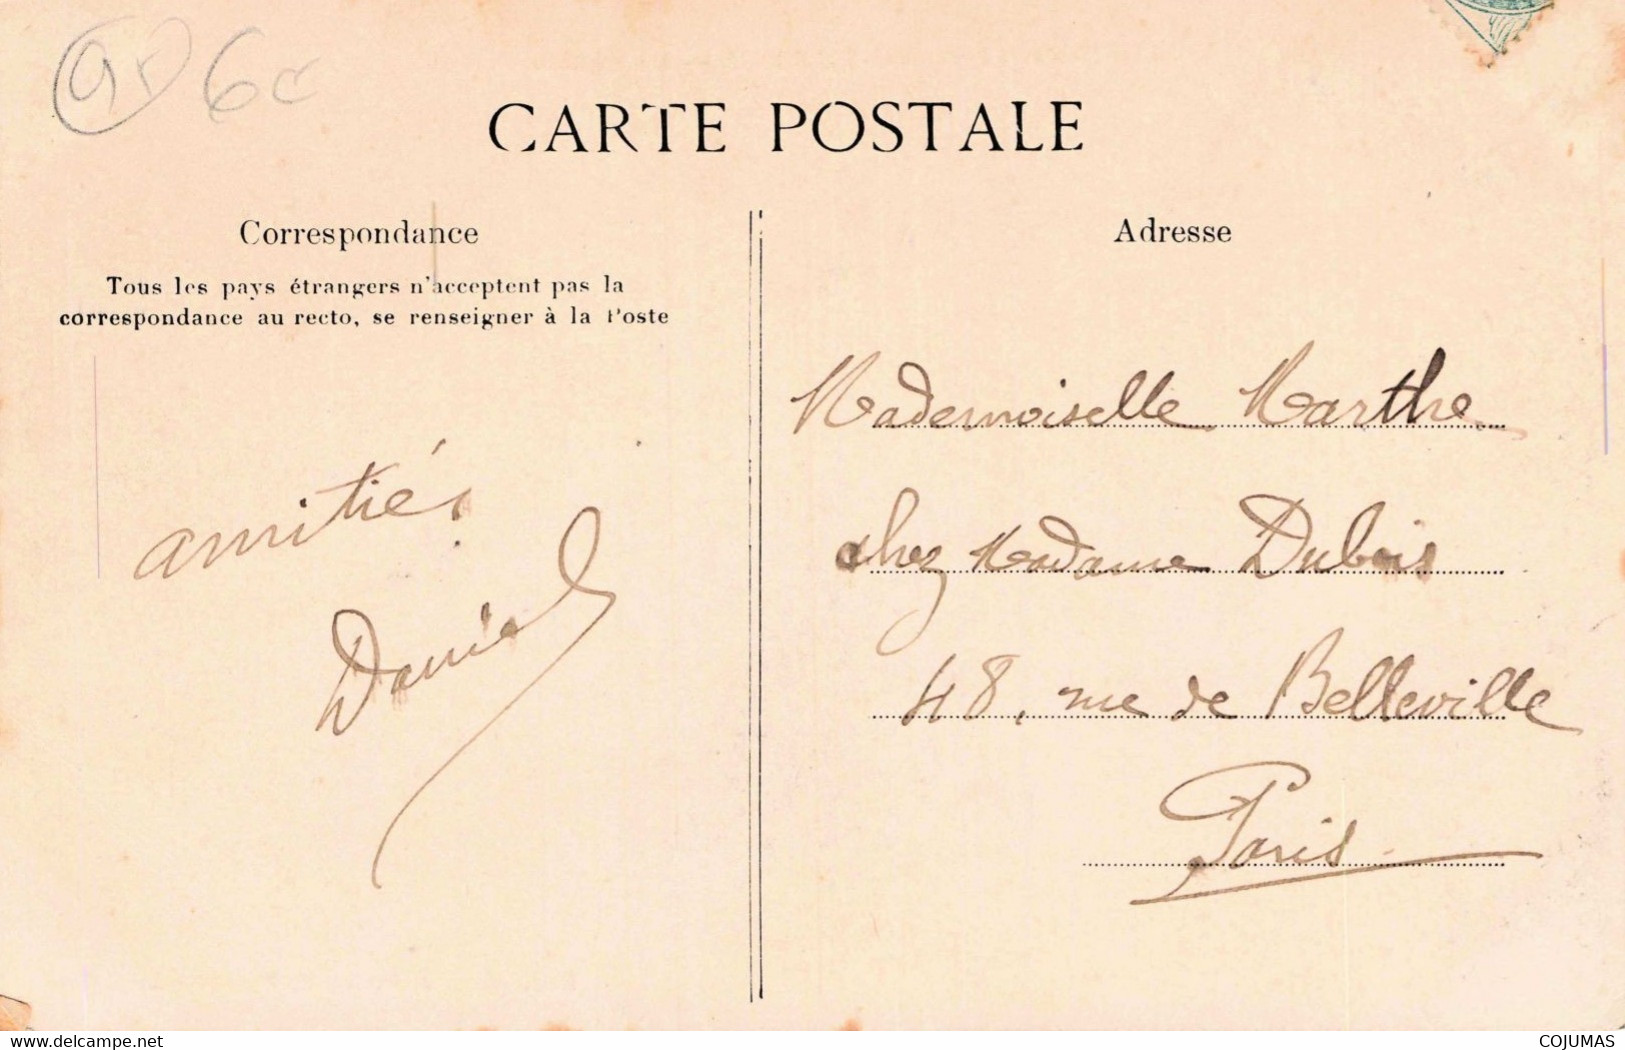 6c
CARTE POSTALE
Correspondance
Tous les pays étrangers n'acceptent pas la
correspondance au recto, se renseigner à la Poste
amitiés
Daniel
Adresse
Mademoiselle Marthe
chez Madame Dubois
48, rue de Belleville
Paris
www.delcampe.net
COJUMAS